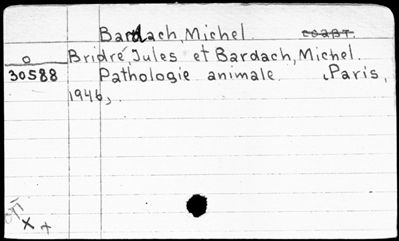 Bardach, Michel. coавт.
o Bridré, Jules et Bardach, Michel.
30588 Pathologie animale. Paris,
1946,.
x +